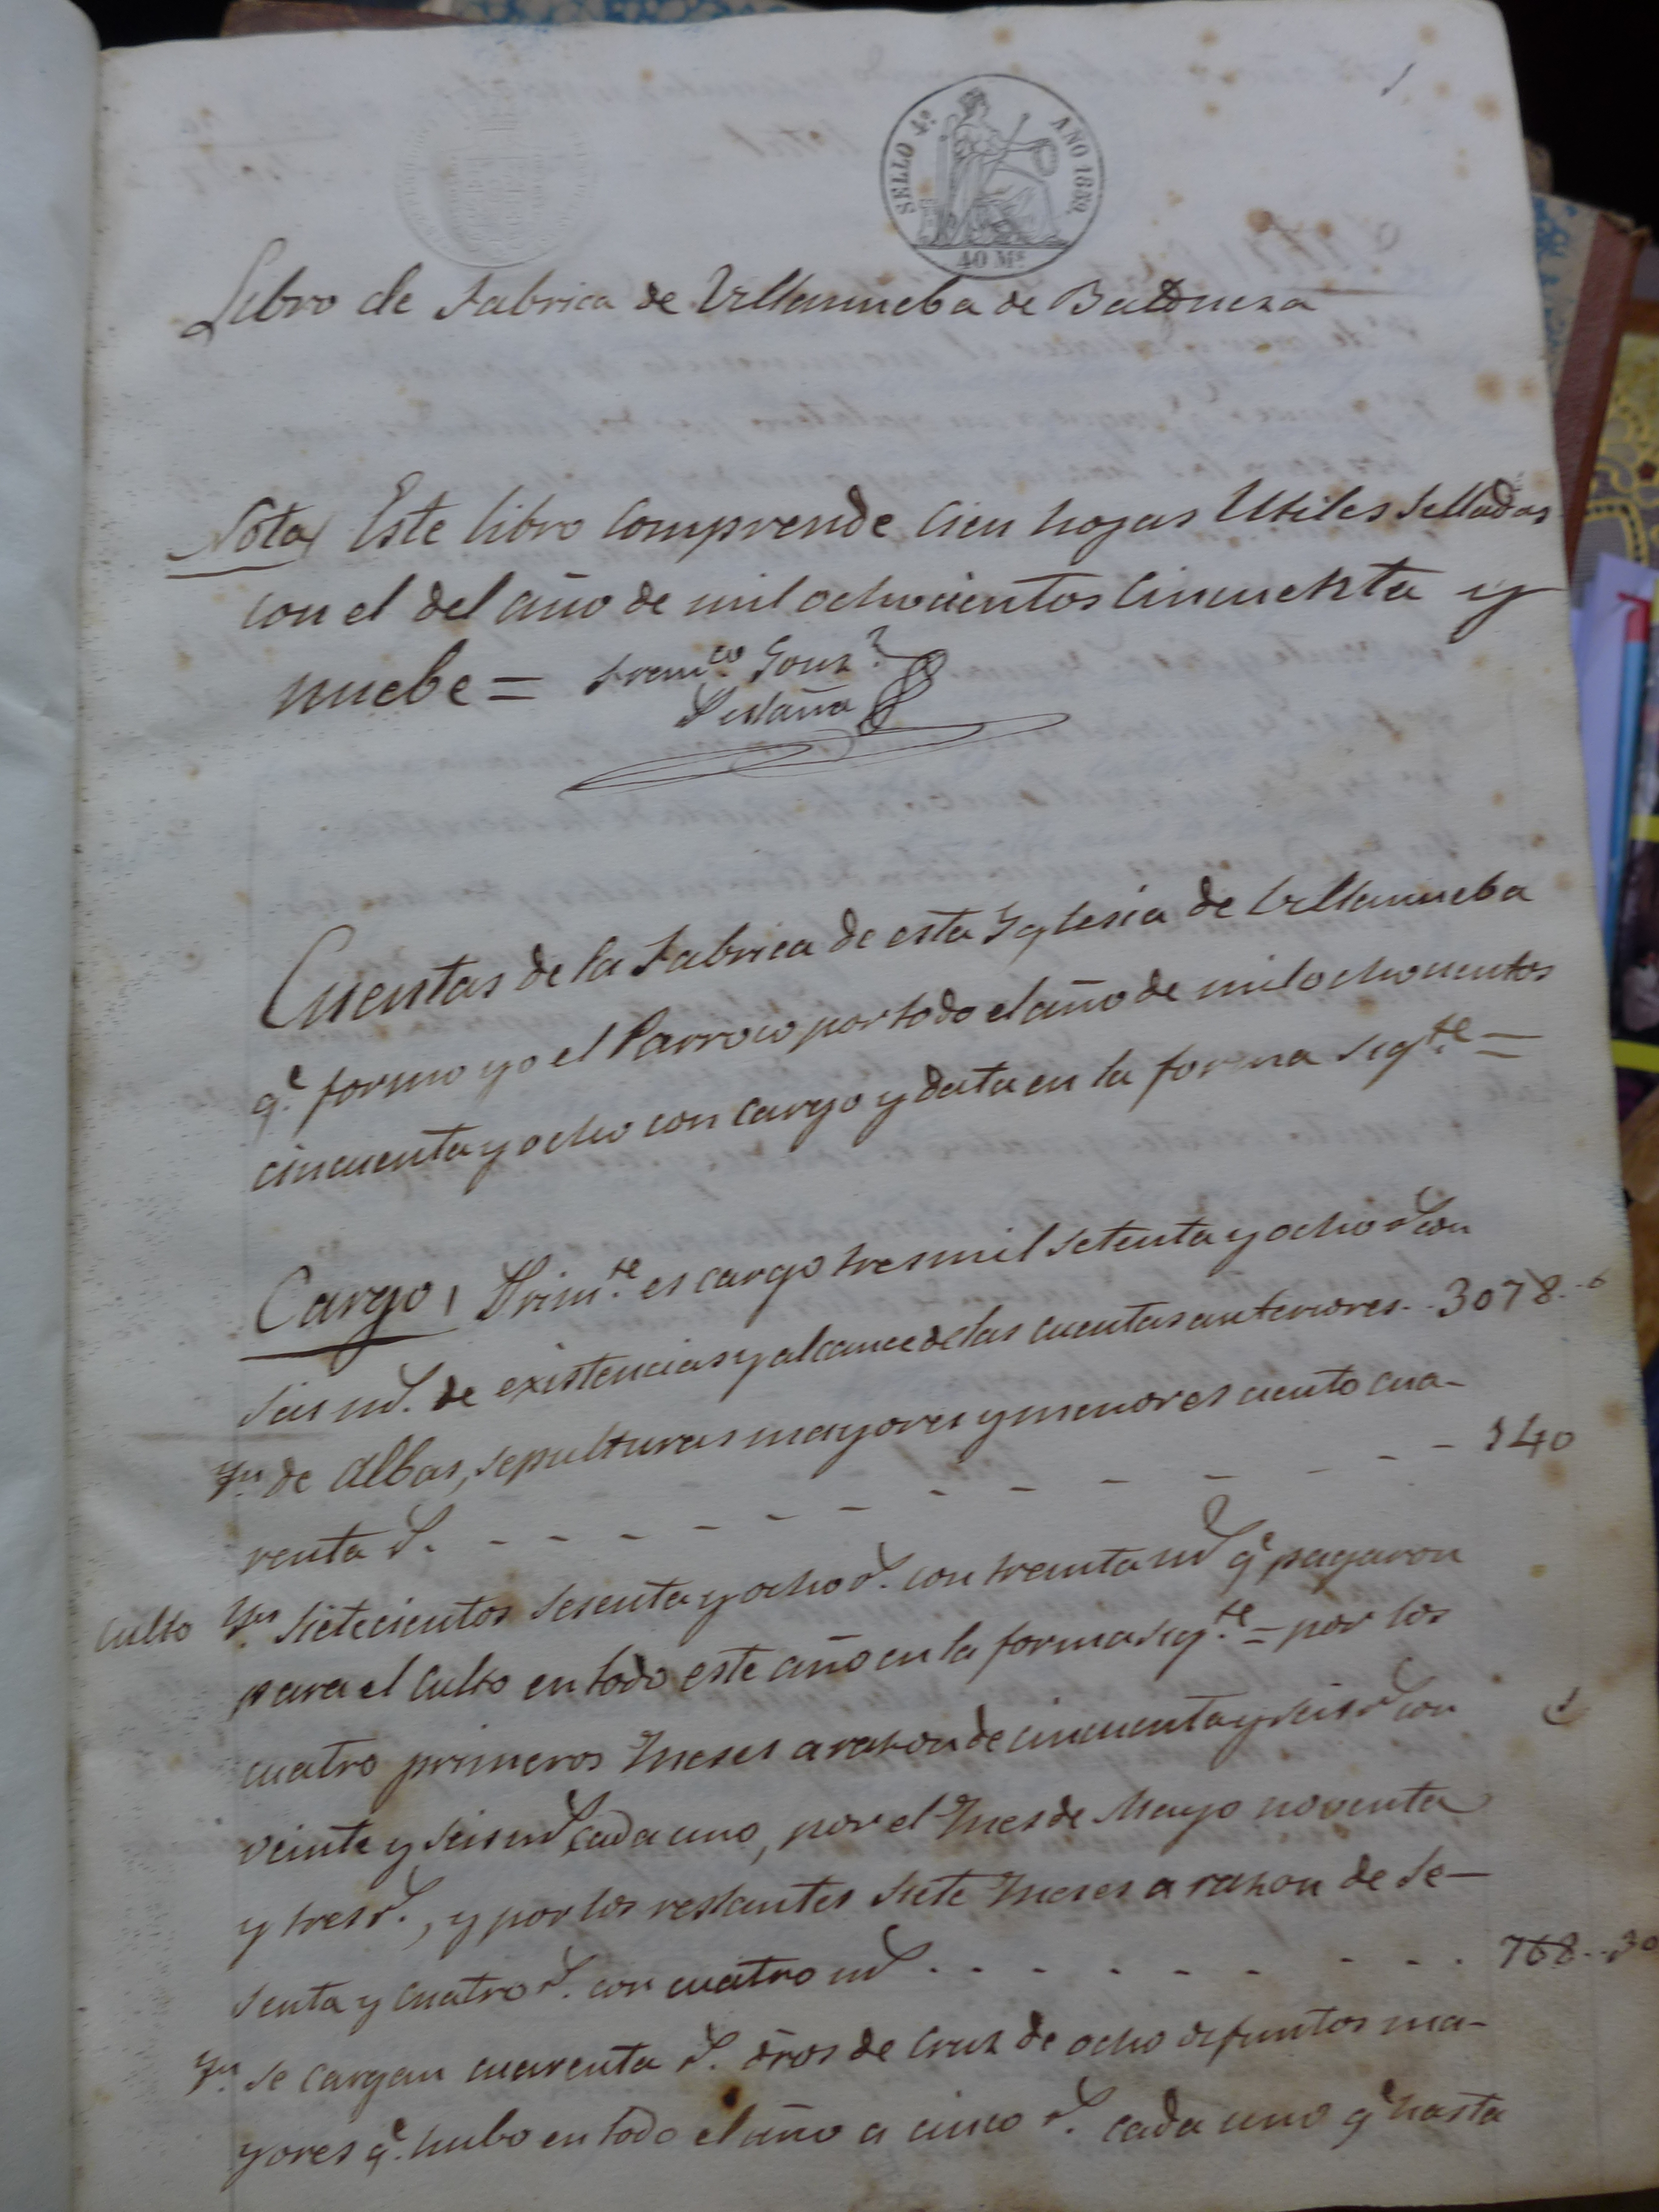 1
SELLO 4º AÑO 1859
40 Ms
Libro de Fabrica de Villanueba de Baldueza
Nota) Este libro comprende cien hojas Utiles Selladas
con el del año de mil ochocientos cincuenta y
nuebe = Franco Gonz
Cuentas de la Fabrica de esta Yglesia de Villanueba
qe formo yo el Parroco por todo el año de mil ochocientos
cincuenta y ocho con cargo y data en la forma sigte =
Cargo) Primte es cargo tres mil setenta y ocho rs con
seis ms. de existencias y alcance de las cuentas anteriores.. 3078..6
Yn de Albas, sepulturas mayores y menores ciento cua-
renta rs. - - - - - - - - - - - - 140
Culto Yn setecientos sesenta y ocho rs. con treinta ms qe pagaron
para el Culto en todo este año en la forma sigte = por los
cuatro primeros Meses a razon de cincuenta y seis rs con
veinte y seis ms cada uno, por el Mes de Mayo noventa
y tres rs., y por los restantes siete Meses a razon de se-
senta y cuatro rs. con cuatro ms . . . . . . . . 768..30
Yn se cargan cuarenta rs. dros de Cruz de ocho difuntos ma-
yores qe hubo en todo el año a cinco rs. cada uno qe hasta